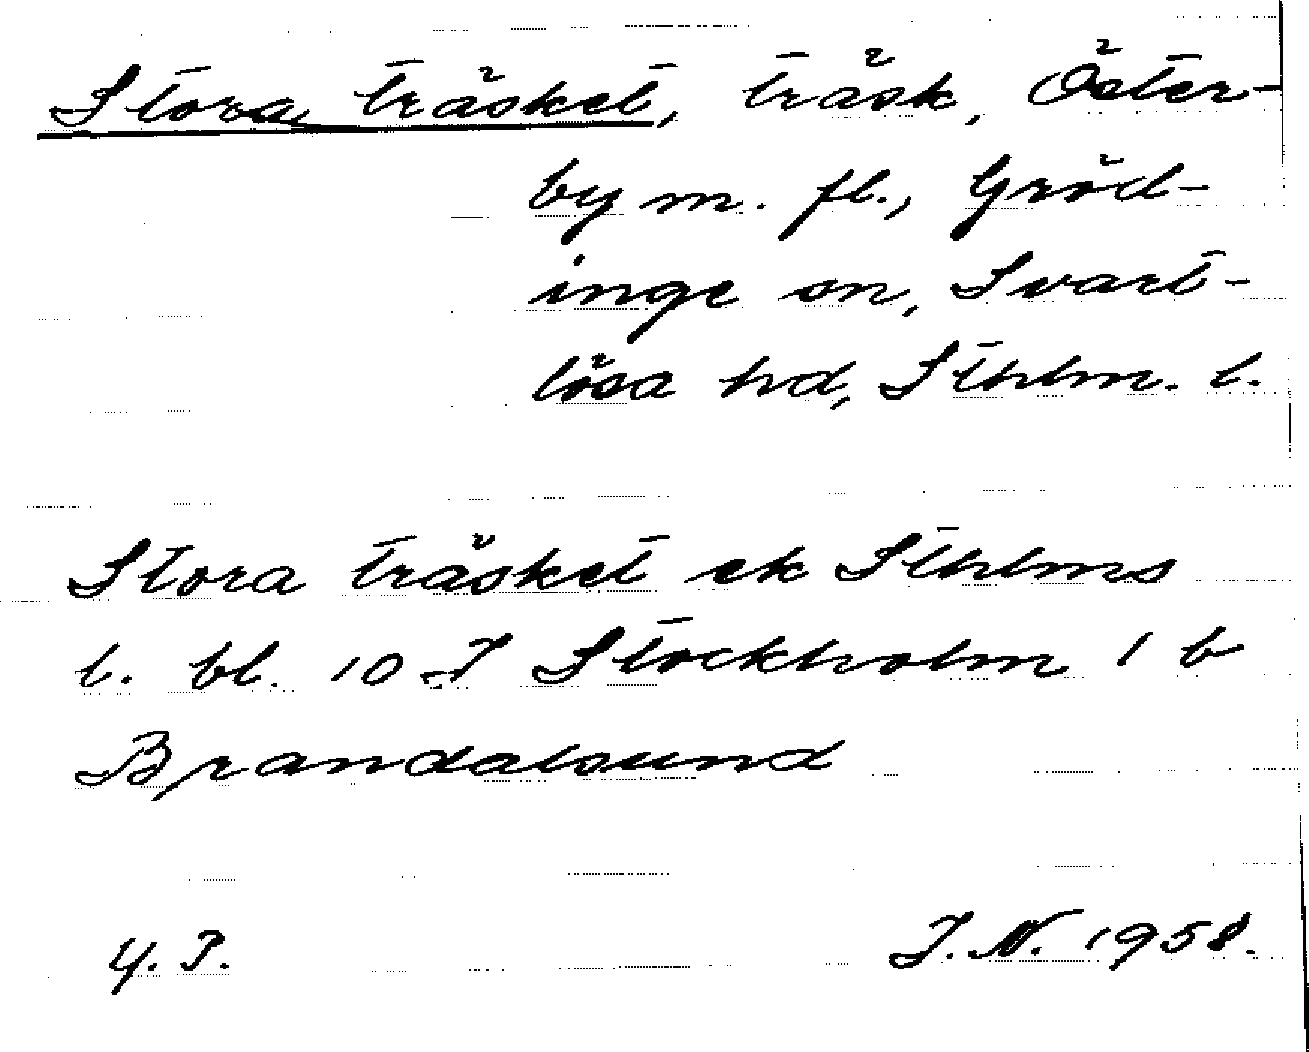 Stora träsket, träsk, Öster-
by m. fl., Gröd-
inge sn, Svart-
lösa hd, Sthlm. l.
Stora träsket ek Sthlms
l. bl. 10 I Stockholm 1 b
Brandalsund
I.N. 1958.